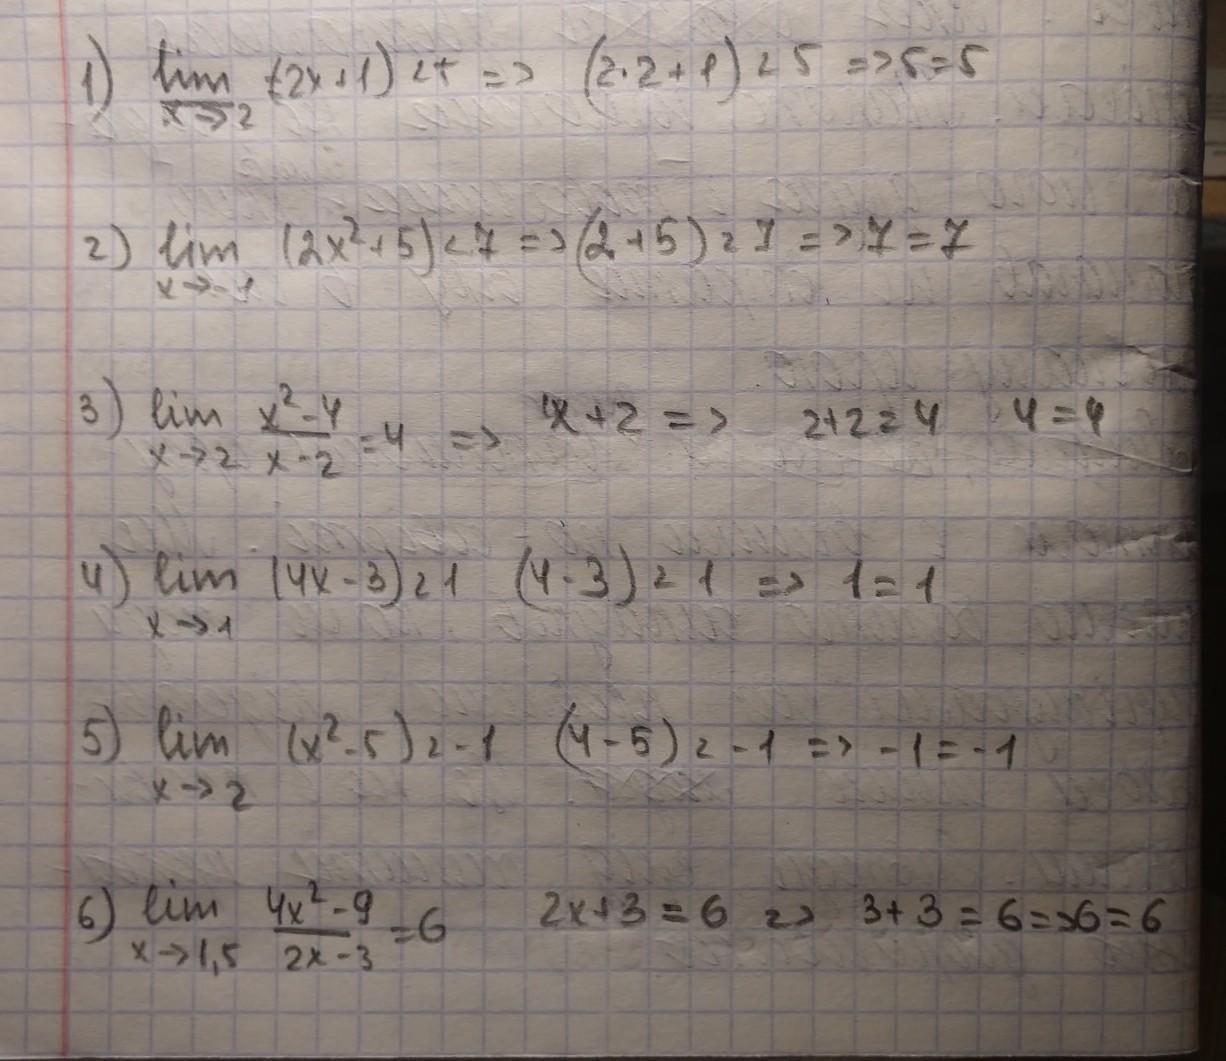 1) lim x→2 (2x+1) = 5 => (2·2+1) = 5 => 5=5
2) lim x→-1 (2x²+5) = 7 => (2+5) = 7 => 7=7
3) lim x→2 (x²-4)/(x-2) = 4 => x+2 => 2+2=4 4=4
4) lim x→1 (4x-3) = 1 (4-3) = 1 => 1=1
5) lim x→2 (x²-5) = -1 (4-5) = -1 => -1=-1
6) lim x→1,5 (4x²-9)/(2x-3) = 6 2x+3=6 => 3+3=6 => 6=6